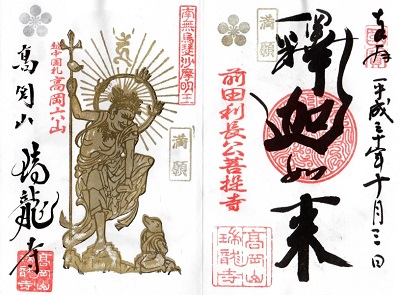 奉拝
平成三十年十月三日
釋迦如来
満願
前田利長公菩提寺
高岡山
瑞龍寺
南無烏蒭沙摩明王
満願
越中国札高岡六山
高岡山
瑞龍寺
高岡山
瑞龍寺